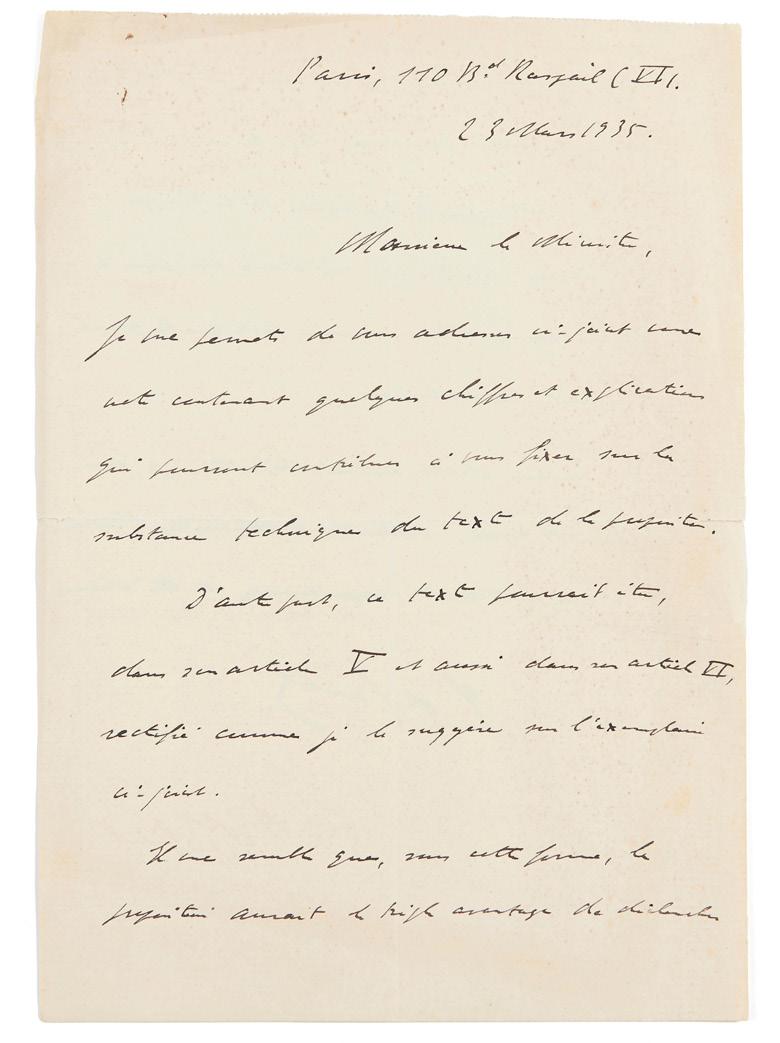 Paris, 110 Bd Raspail (VI).
23 Mars 1935.
Monsieur le Ministre,
Je me permets de vous adresser ci-joint une
note contenant quelques chiffres et explications
qui pourront contribuer à vous fixer sur la
substance technique du texte de la proposition.
D'autre part, ce texte pourrait être,
dans son article V et aussi dans son article VI,
rectifié comme je le suggère sur l'exemplaire
ci-joint.
Il me semble que, sous cette forme, la
proposition aurait le triple avantage de déclencher